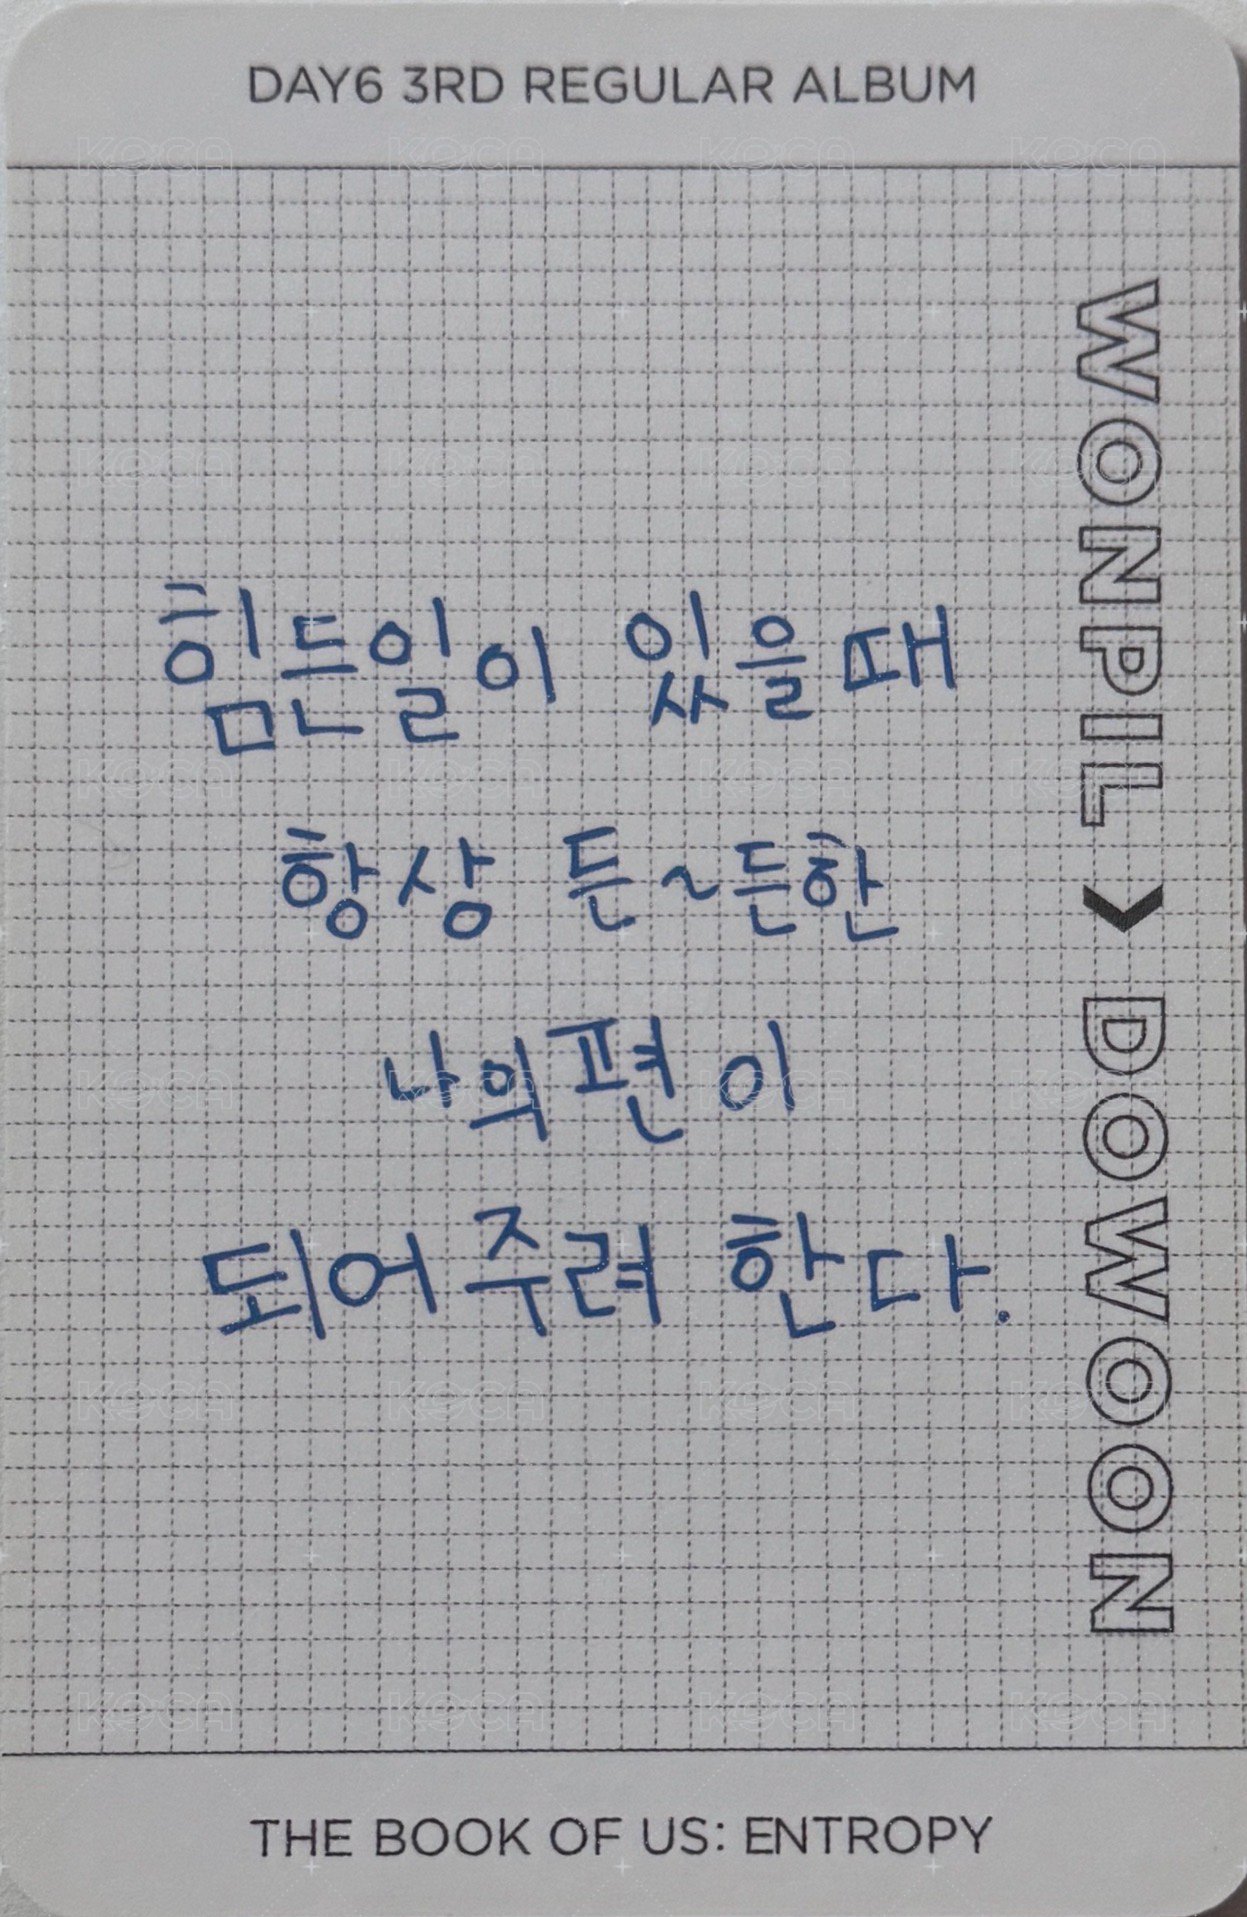 DAY6 3RD REGULAR ALBUM
힘든일이 있을때
항상 든~든한
나의편이
되어주려 한다.
WONPIL > DOWOON
THE BOOK OF US: ENTROPY
KOCA